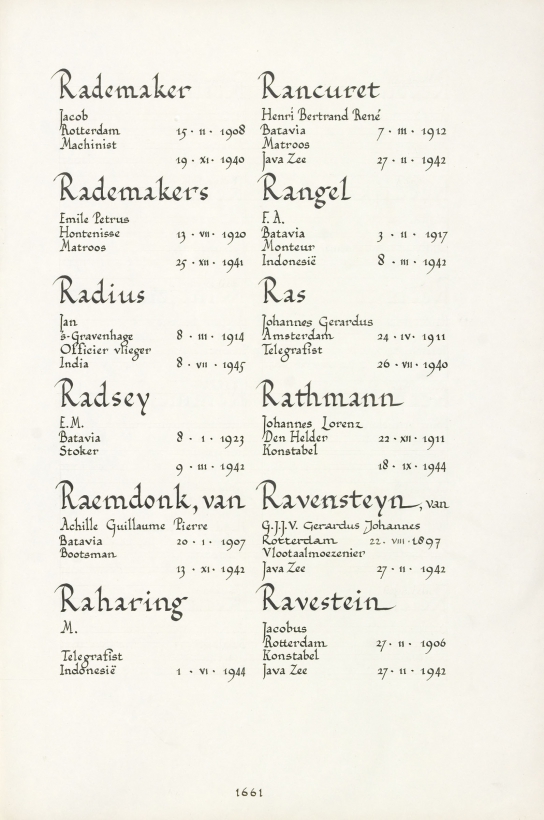 Rademaker
Jacob
Rotterdam 15 · II · 1908
Machinist
19 · XI · 1940
Rademakers
Emile Petrus
Hontenisse 13 · VII · 1920
Matroos
25 · XII · 1941
Radius
Jan
's-Gravenhage 8 · III · 1914
Officier vlieger
India 8 · VII · 1945
Radsey
E.M.
Batavia 8 · I · 1923
Stoker
9 · III · 1942
Raemdonk, van
Achille Guillaume Pierre
Batavia 20 · I · 1907
Bootsman
13 · XI · 1942
Raharing
M.
Telegrafist
Indonesië 1 · VI · 1944
Rancuret
Henri Bertrand René
Batavia 7 · III · 1912
Matroos
Java Zee 27 · II · 1942
Rangel
F. A.
Batavia 3 · II · 1917
Monteur
Indonesië 8 · III · 1942
Ras
Johannes Gerardus
Amsterdam 24 · IV · 1911
Telegrafist
26 · VII · 1940
Rathmann
Johannes Lorenz
Den Helder 22 · XII · 1911
Konstabel
18 · IX · 1944
Ravensteyn, van
G.J.J.V. Gerardus Johannes
Rotterdam 22 · VIII · 1897
Vlootaalmoezenier
Java Zee 27 · II · 1942
Ravestein
Jacobus
Rotterdam 27 · II · 1906
Konstabel
Java Zee 27 · II · 1942
1661